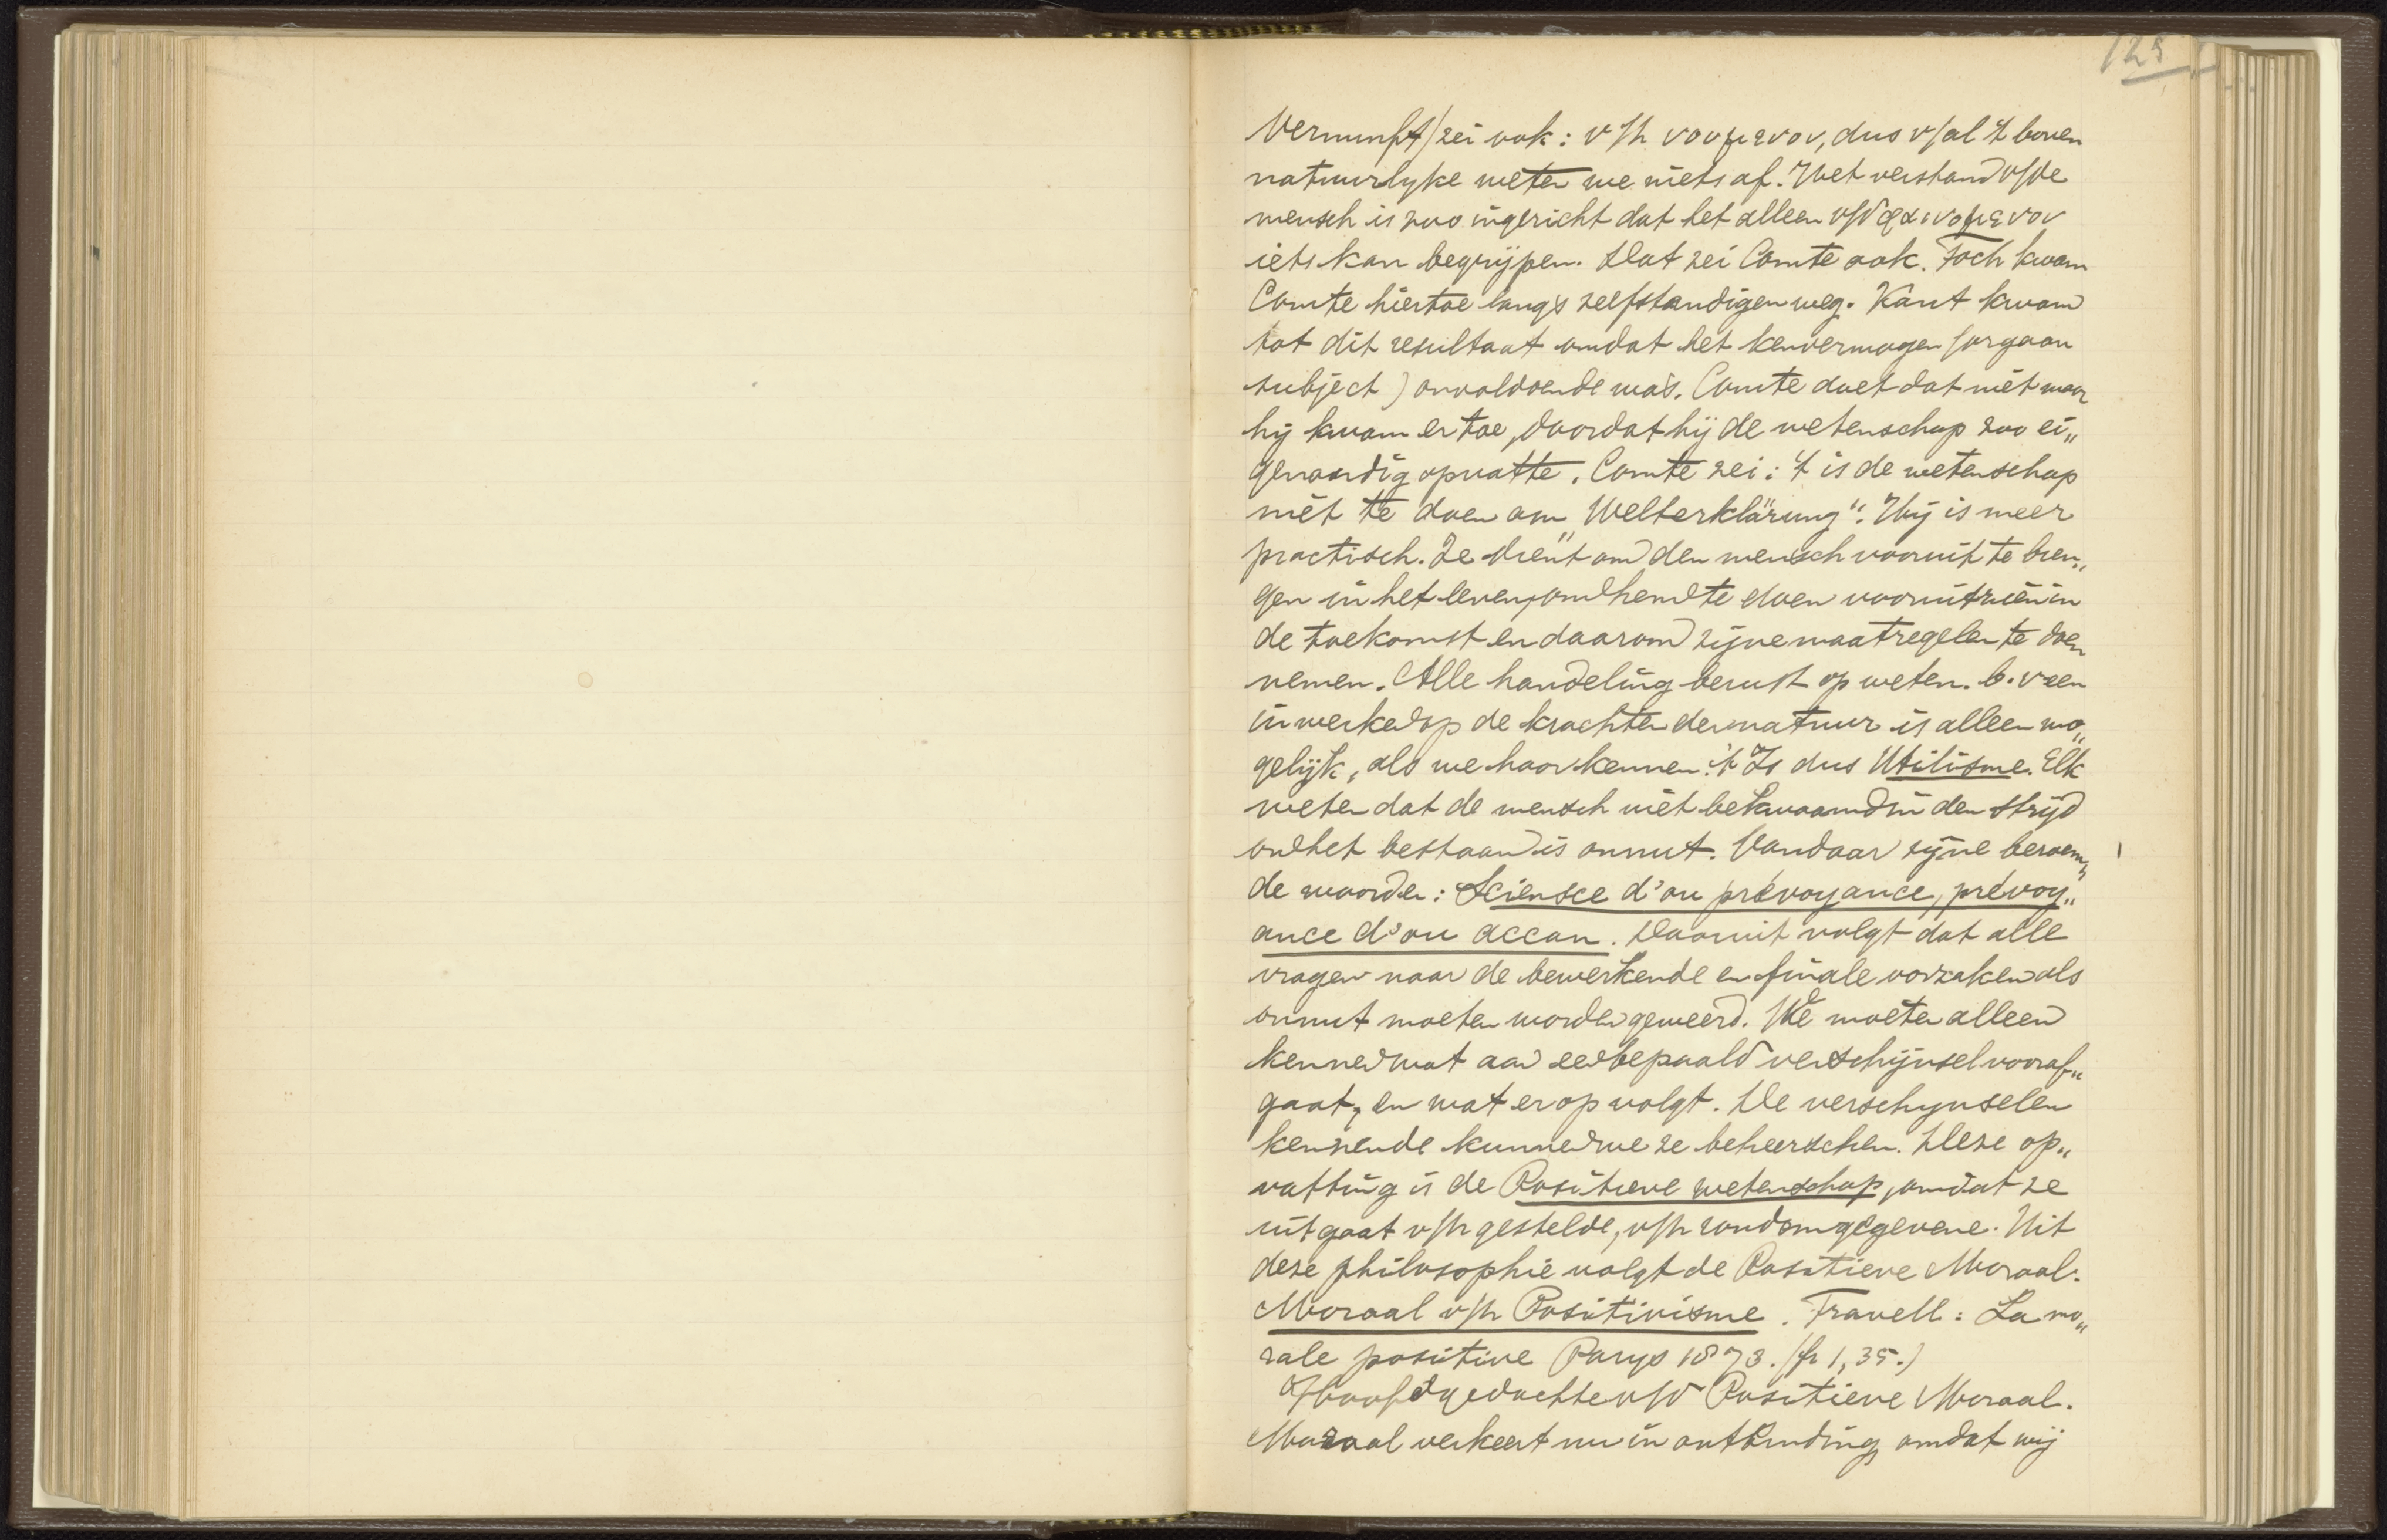 125
Vernunft) zei ook: v/h νοουμενον, dus v/al 't boven
natuurlyke weten we niets af. Het verstand v/de
mensch is zoo ingericht dat het alleen v/d φαινομενον
iets kan begrijpen. Dat zei Comte ook. Toch kwam
Comte hiertoe langs zelfstandigen weg. Kant kwam
tot dit resultaat omdat het kenvermogen (orgaan
subject) onvoldoende was. Comte doet dat niet maar
hij kwam er toe, doordat hij de wetenschap zoo ei„
genaardig opvatte. Comte zei: 't is de wetenschap
niet te doen om „Welterklärung“. Hij is meer
practisch. Ze dient om den mensch vooruit te bren„
gen in het leven, om hem te doen vooruitzien in
de toekomst en daarom zijne maatregelen te doen
nemen. Alle handeling berust op weten. b.v een
inwerken op de krachten der natuur is alleen mo„
gelijk, als we haar kennen. 't Is dus Utilisme. Elk
weten dat de mensch niet bekwaamd in den strijd
om het bestaan is onnut. Vandaar zijne beroem„
de woorden: Sciensce d'ou prévoyance, prévoy„
ance d'ou accan. Daaruit volgt dat alle
vragen naar de bewerkende en finale oorzaken als
onnut moeten worden geweerd. We moeten alleen
kennen wat aan een bepaald verschijnsel vooraf„
gaat, en wat er op volgt. De verschynselen
kennende kunnen we ze beheerschen. Deze op„
vatting is de Positieve wetenschap, omdat ze
uitgaat v/h gestelde, v/h rondom gegevene. Uit
deze philosophie volgt de Positieve Moraal.
Moraal v/h Positivisme. Travell: La mo„
rale positive Parys 1873. (fr 1,35.)
Hoofdgedachte v/d Positieve Moraal.
Moraal verkeert nu in ontbinding omdat wij